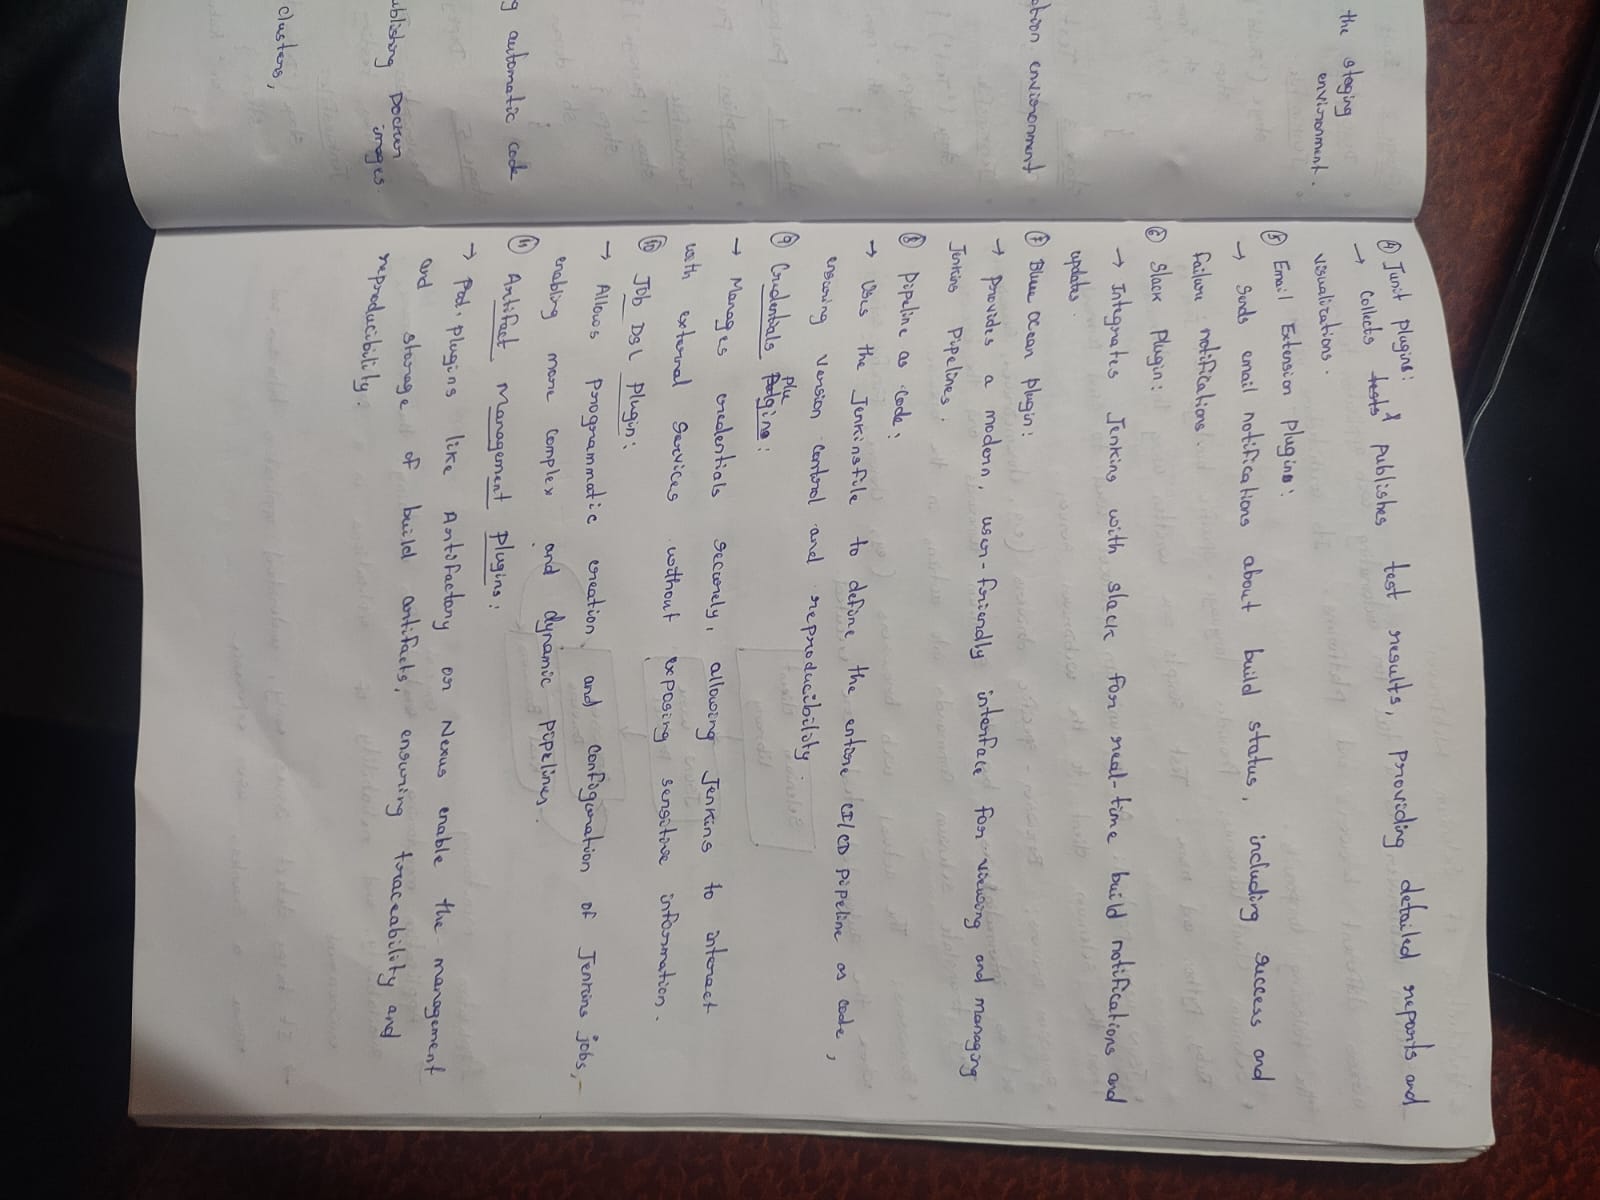 the staging
environment.
environment
g automatic code
ublishing Docker
images.
clusters,
④ Junit Plugins:
→ Collects & publishes test results, providing detailed reports and
visualizations.
⑤ Email Extension Plugins:
→ Sends email notifications about build status, including success and
failure notifications.
⑥ Slack Plugin:
→ Integrates Jenkins with slack for real-time build notifications and
updates.
⑦ Blue Ocean plugin:
→ Provides a modern, user-friendly interface for viewing and managing
Jenkins Pipelines.
⑧ Pipeline as code:
→ Uses the Jenkinsfile to define the entire CI/CD pipeline as code,
ensuring version control and reproducibility.
⑨ Credentials Plugins:
→ Manages credentials securely, allowing Jenkins to interact
with external services without exposing sensitive information.
⑩ Job DSL Plugin:
→ Allows programmatic creation and configuration of Jenkins jobs,
enabling more complex and dynamic pipelines.
⑪ Artifact Management Plugins:
→ plugins like Artifactory or Nexus enable the management
and storage of build artifacts, ensuring traceability and
reproducibility.